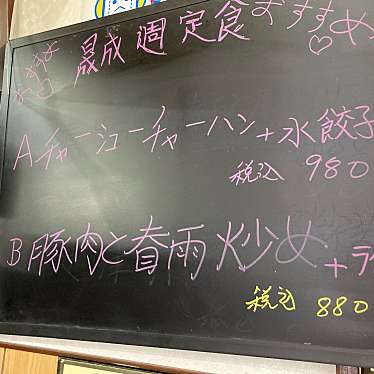 晟成週定食おすすめ♡
Aチャーシューチャーハン+水餃子
税込 980
B豚肉と春雨炒め+ラ
税込 880